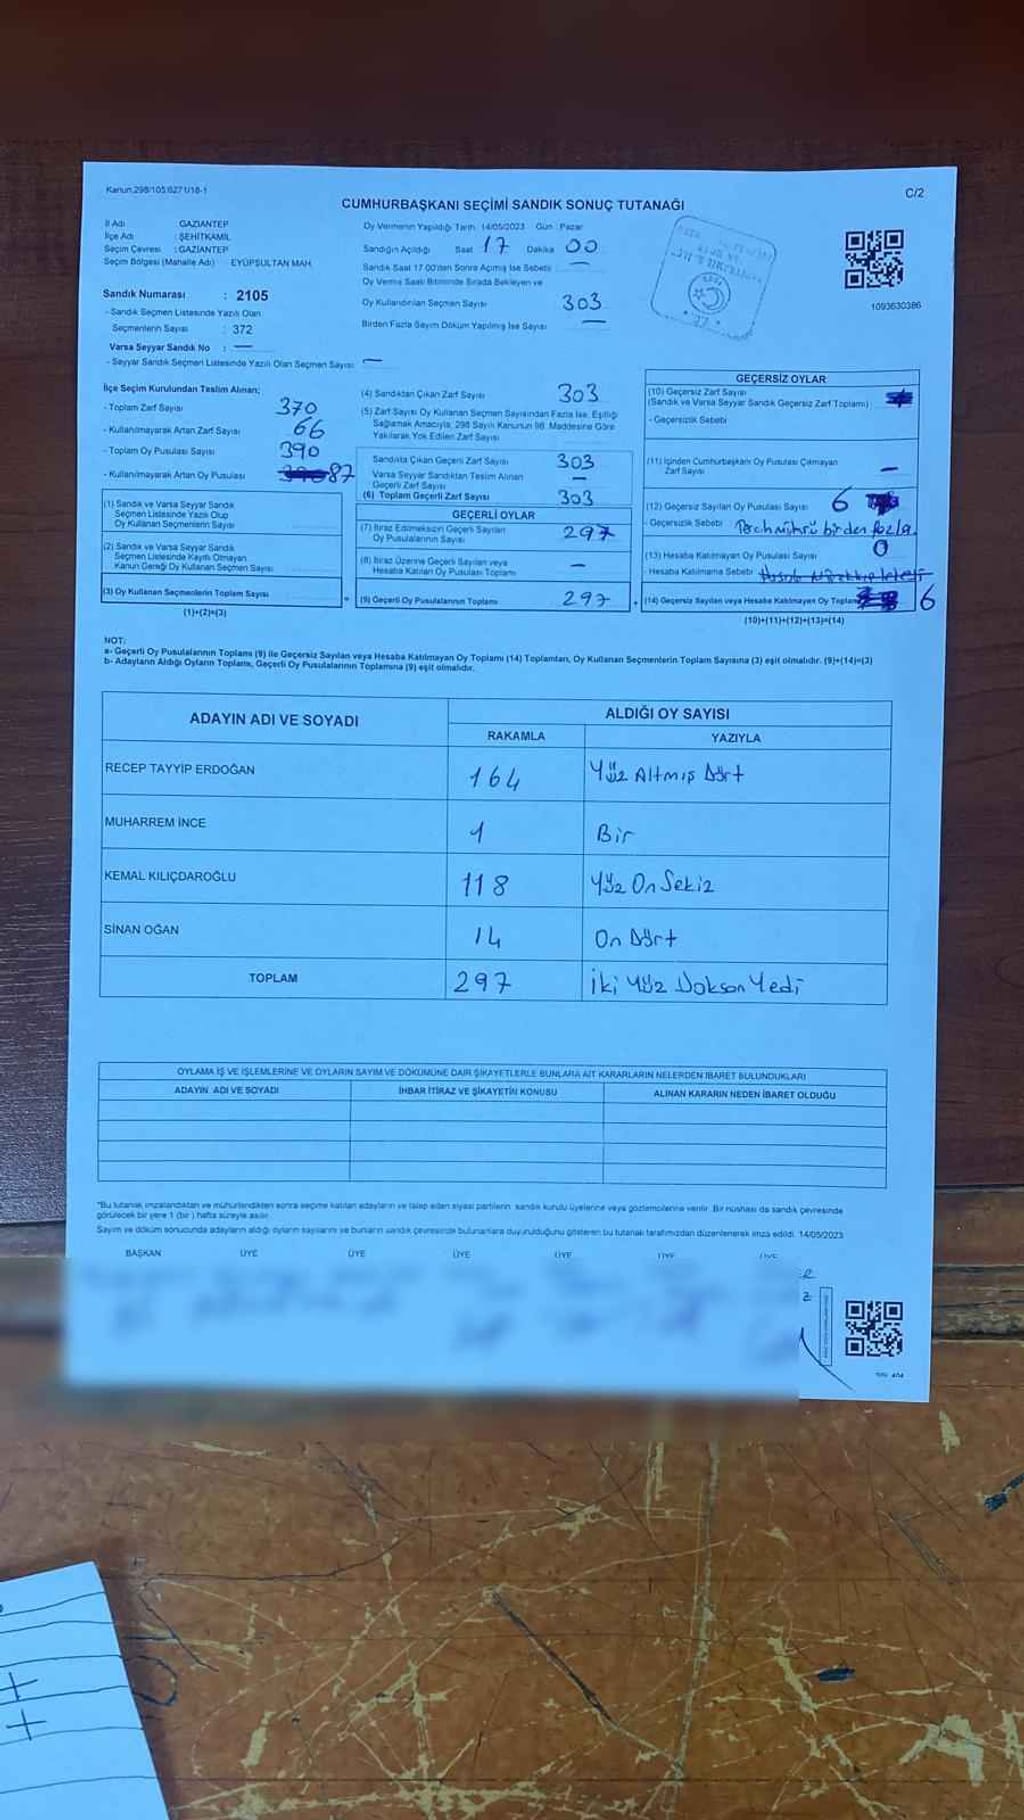 Kanun.298/105.6271/18-1
C/2
CUMHURBAŞKANI SEÇİMİ SANDIK SONUÇ TUTANAĞI
İl Adı GAZİANTEP
İlçe Adı : ŞEHİTKAMİL
Seçim Çevresi : GAZİANTEP
Seçim Bölgesi (Mahalle Adı) EYÜPSULTAN MAH.
Sandık Numarası : 2105
- Sandık Seçmen Listesinde Yazılı Olan
Seçmenlerin Sayısı : 372
Varsa Seyyar Sandık No : —
- Seyyar Sandık Seçmen Listesinde Yazılı Olan Seçmen Sayısı —
Oy Vermenin Yapıldığı Tarih 14/05/2023 Gün : Pazar
Sandığın Açıldığı Saat 17 Dakika 00
Sandık Saat 17.00'den Sonra Açılmış İse Sebebi —
Oy Verme Saati Bitiminde Sırada Bekleyen ve
Oy Kullandırılan Seçmen Sayısı 303
Birden Fazla Sayım Döküm Yapılmış İse Sayısı —
1093630386
İlçe Seçim Kurulundan Teslim Alınan;
- Toplam Zarf Sayısı 370
- Kullanılmayarak Artan Zarf Sayısı 66
- Toplam Oy Pusulası Sayısı 390
- Kullanılmayarak Artan Oy Pusulası 87
(1) Sandık ve Varsa Seyyar Sandık
Seçmen Listesinde Yazılı Olup
Oy Kullanan Seçmenlerin Sayısı
(2) Sandık ve Varsa Seyyar Sandık
Seçmen Listesinde Kayıtlı Olmayan
Kanun Gereği Oy Kullanan Seçmen Sayısı
(3) Oy Kullanan Seçmenlerin Toplam Sayısı
(1)+(2)=(3)
(4) Sandıktan Çıkan Zarf Sayısı 303
(5) Zarf Sayısı Oy Kullanan Seçmen Sayısından Fazla İse, Eşitliği
Sağlamak Amacıyla, 298 Sayılı Kanunun 98. Maddesine Göre
Yakılarak Yok Edilen Zarf Sayısı
Sandıkta Çıkan Geçerli Zarf Sayısı 303
Varsa Seyyar Sandıktan Teslim Alınan
Geçerli Zarf Sayısı —
(6) Toplam Geçerli Zarf Sayısı 303
GEÇERLİ OYLAR
(7) İtiraz Edilmeksizin Geçerli Sayılan
Oy Pusulalarının Sayısı 297
(8) İtiraz Üzerine Geçerli Sayılan veya
Hesaba Katılan Oy Pusulası Toplamı —
(9) Geçerli Oy Pusulalarının Toplamı 297
GEÇERSİZ OYLAR
(10) Geçersiz Zarf Sayısı
(Sandık ve Varsa Seyyar Sandık Geçersiz Zarf Toplamı)
- Geçersizlik Sebebi
(11) İçinden Cumhurbaşkanı Oy Pusulası Çıkmayan
Zarf Sayısı —
(12) Geçersiz Sayılan Oy Pusulası Sayısı 6
- Geçersizlik Sebebi Tercih mührü birden fazla.
(13) Hesaba Katılmayan Oy Pusulası Sayısı 0
- Hesaba Katılmama Sebebi
(14) Geçersiz Sayılan veya Hesaba Katılmayan Oy Toplamı 6
(10)+(11)+(12)+(13)=(14)
NOT:
a- Geçerli Oy Pusulalarının Toplamı (9) ile Geçersiz Sayılan veya Hesaba Katılmayan Oy Toplamı (14) Toplamları, Oy Kullanan Seçmenlerin Toplam Sayısına (3) eşit olmalıdır. (9)+(14)=(3)
b- Adayların Aldığı Oyların Toplamı, Geçerli Oy Pusulalarının Toplamına (9) eşit olmalıdır.
ADAYIN ADI VE SOYADI
ALDIĞI OY SAYISI
RAKAMLA YAZIYLA
RECEP TAYYİP ERDOĞAN 164 Yüz Altmış Dört
MUHARREM İNCE 1 Bir
KEMAL KILIÇDAROĞLU 118 Yüz On Sekiz
SİNAN OĞAN 14 On Dört
TOPLAM 297 İki Yüz Doksan Yedi
OYLAMA İŞ VE İŞLEMLERİNE VE OYLARIN SAYIM VE DÖKÜMÜNE DAİR ŞİKAYETLERLE BUNLARA AİT KARARLARIN NELERDEN İBARET BULUNDUKLARI
ADAYIN ADI VE SOYADI İHBAR İTİRAZ VE ŞİKAYETİN KONUSU ALINAN KARARIN NEDEN İBARET OLDUĞU
*Bu tutanak imzalandıktan ve mühürlendikten sonra seçime katılan adayların ve talep eden siyasi partilerin sandık kurulu üyelerine veya gözlemcilerine verilir. Bir nüshası da sandık çevresinde
görülecek bir yere 1 (bir) hafta süreyle asılır.
Sayım ve döküm sonucunda adayların aldığı oyların sayılarını ve bunların sandık çevresinde bulunanlara duyurulduğunu gösteren bu tutanak tarafımızdan düzenlenerek imza edildi. 14/05/2023
BAŞKAN ÜYE ÜYE ÜYE ÜYE ÜYE ÜYE